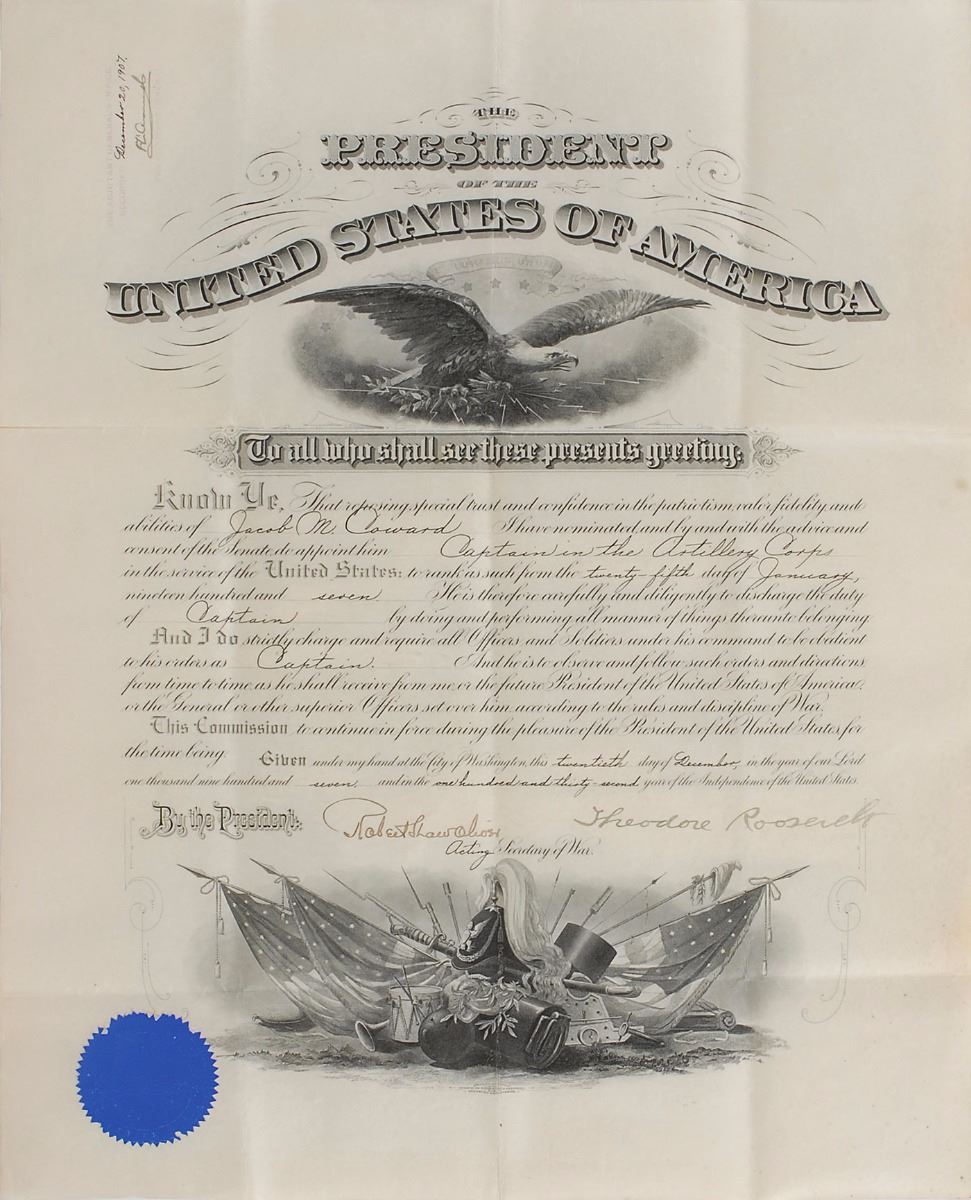 December 20, 1907.
THE
PRESIDENT
OF THE
UNITED STATES OF AMERICA
To all who shall see these presents greeting:
Know Ye, That reposing special trust and confidence in the patriotism, valor, fidelity and
abilities of Jacob M. Coward I have nominated and by and with the advice and
consent of the Senate, do appoint him Captain in the Artillery Corps
in the service of the United States: to rank as such from the twenty-fifth day of January,
nineteen hundred and seven He is therefore carefully and diligently to discharge the duty
of Captain by doing and performing all manner of things thereunto belonging
And I do strictly charge and require all Officers and Soldiers under his command to be obedient
to his orders as Captain. And he is to observe and follow such orders and directions
from time to time, as he shall receive from me, or the future President of the United States of America,
or the General or other superior Officers set over him, according to the rules and discipline of War.
This Commission to continue in force during the pleasure of the President of the United States, for
the time being. Given under my hand at the City of Washington, this twentieth day of December, in the year of our Lord
one thousand nine hundred and seven, and in the one hundred and thirty-second year of the Independence of the United States.
By the President: Robert Shaw Oliver Theodore Roosevelt
Acting Secretary of War.